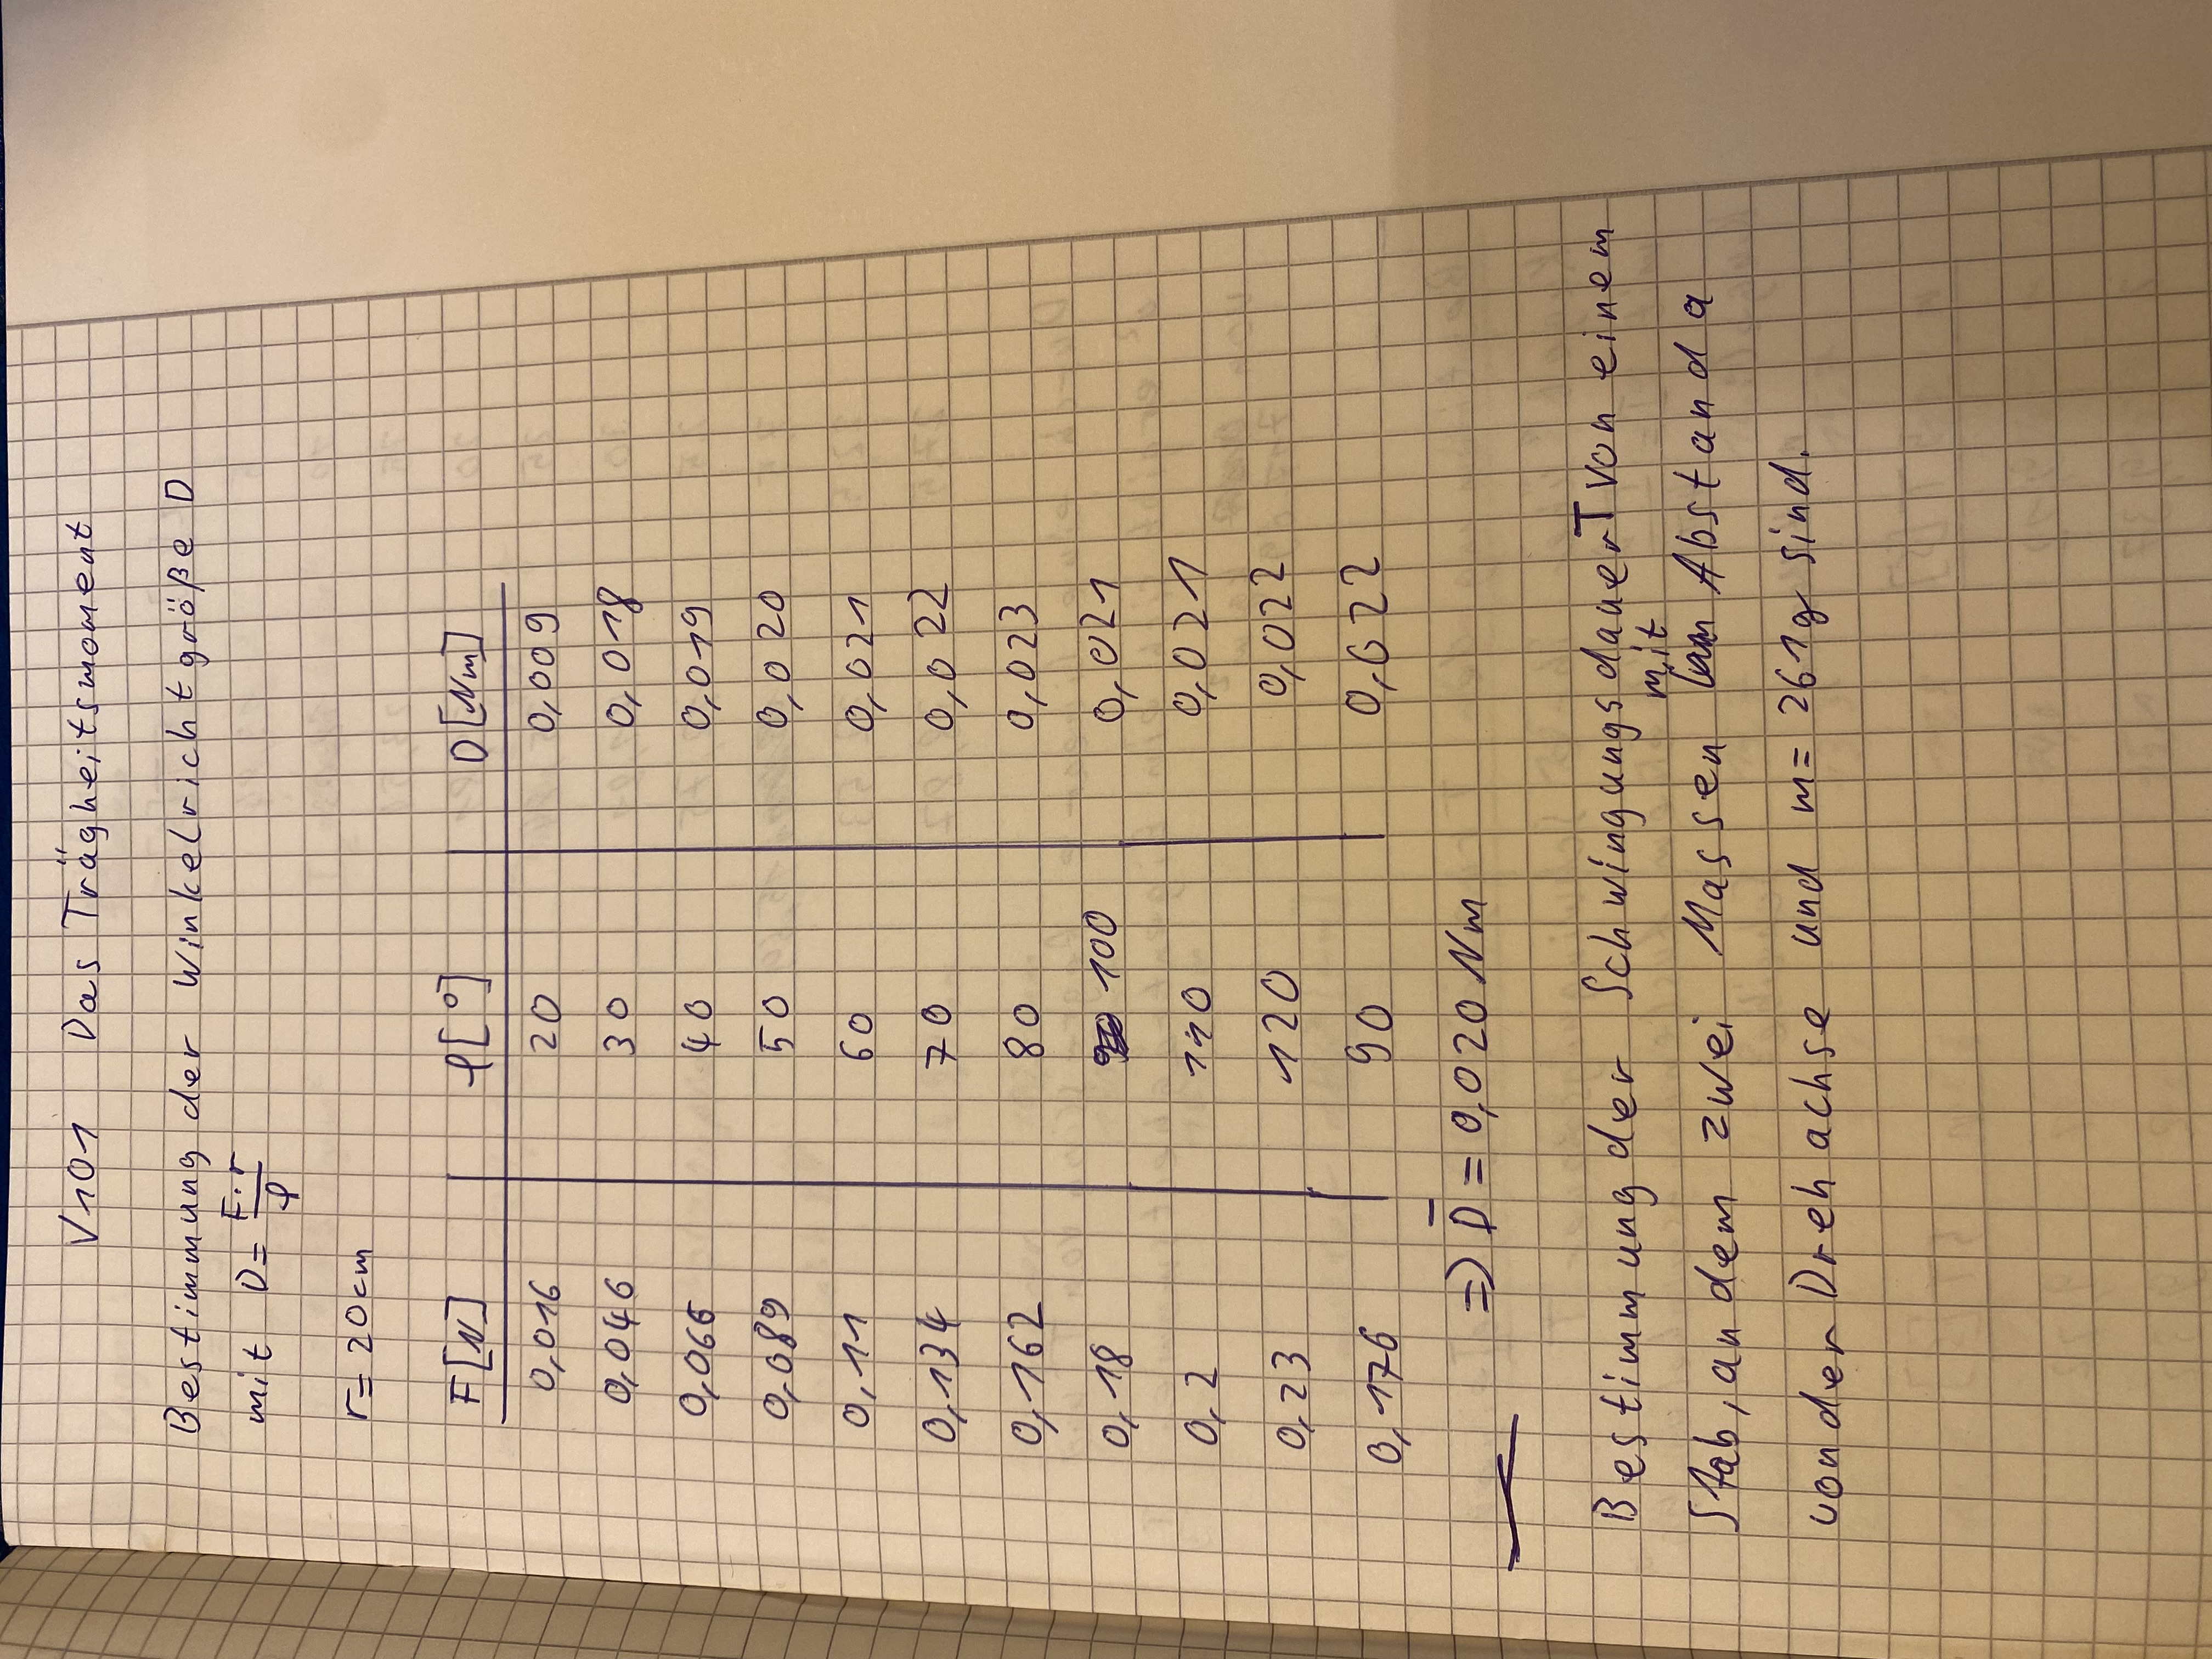 V101 Das Trägheitsmoment
Bestimmung der Winkelrichtgröße D
mit D = F·r / φ
r = 20cm
F[N] φ[°] D[Nm]
0,016 20 0,009
0,046 30 0,018
0,066 40 0,019
0,089 50 0,020
0,11 60 0,021
0,134 70 0,022
0,162 80 0,023
0,18 100 0,021
0,2 110 0,021
0,23 120 0,022
0,176 90 0,022
=> D̄ = 0,020 Nm
Bestimmung der Schwingungsdauer T von einem
Stab, an dem zwei Massen mit Abstand a
von der Drehachse und m = 261g sind.